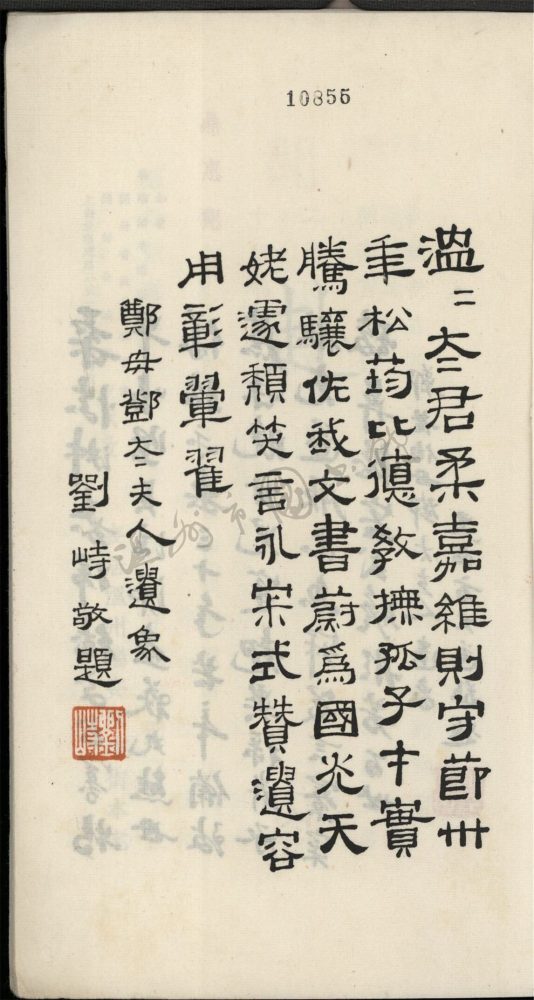 10855
溫〻太君柔嘉維則守節卅
年松筠比德敎撫孤子才實
騰驤佐我文書蔚爲國光天
姥遽頹笑言永宋式贊遺容
用彰翬翟
鄭母鄧太夫人遺象
劉峙敬題
劉峙